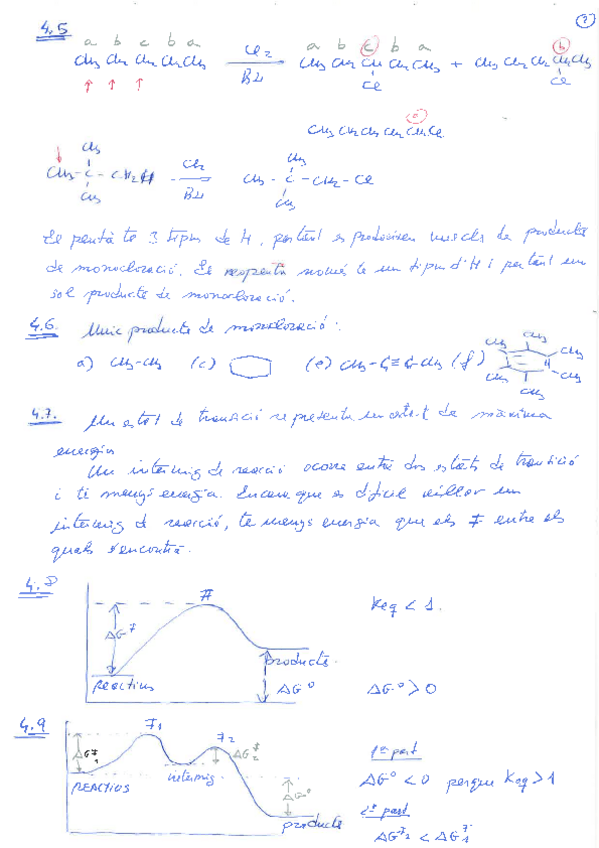 2
4.5
a b c b a a b c b a b
CH3 CH2 CH2 CH2 CH3 Cl2 CH3 CH2 CH CH2 CH3 + CH3 CH2 CH2 CH CH3
Cl Cl
a
CH3 CH2 CH2 CH2 CH2 Cl
CH3 CH3
CH3 - C - CH2H Cl2 CH3 - C - CH2 - Cl
CH3 CH3
El pentà té 3 tipus de H, per tant es produeixen mescla de productes
de monocloració. El neopentà només te un tipus d'H i per tant un
sol producte de monocloració.
4.6. Unic producte de monocloració:
a) CH3-CH3 (c) (e) CH3-C≡C-CH3 (f) CH3 CH3 CH3 H CH3 CH3 CH3
4.7. Un estat de transició representa un estat de màxima
energia
Un intermig de reacció ocorre entre dos estats de transició
i té menys energia. Encara que es difícil aïllar un
intermig de reacció, te menys energia que els ‡ entre els
quals s'encontra.
4.8
‡ Keq < 1.
ΔG‡
products.
reactius ΔG° ΔG° > 0
4.9
‡1 ‡2 1ª part
ΔG‡1 ΔG‡2
intermig ΔG° < 0 perque Keq > 1
REACTIUS ΔG° 2ª part
producte ΔG‡2 < ΔG‡1